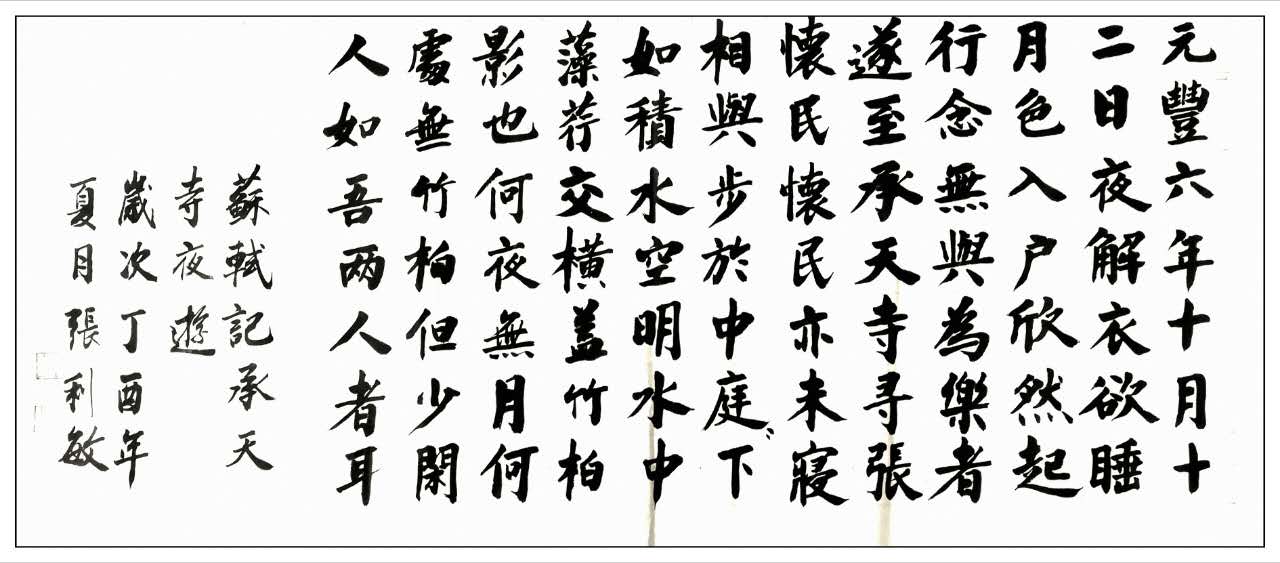 元豐六年十月十
二日夜解衣欲睡
月色入户欣然起
行念無與為樂者
遂至承天寺寻張
懷民懷民亦未寢
相與步於中庭〻下
如積水空明水中
藻荇交橫盖竹柏
影也何夜無月何
處無竹柏但少閑
人如吾两人者耳
蘇軾記承天
寺夜遊
歲次丁酉年
夏月張利敏